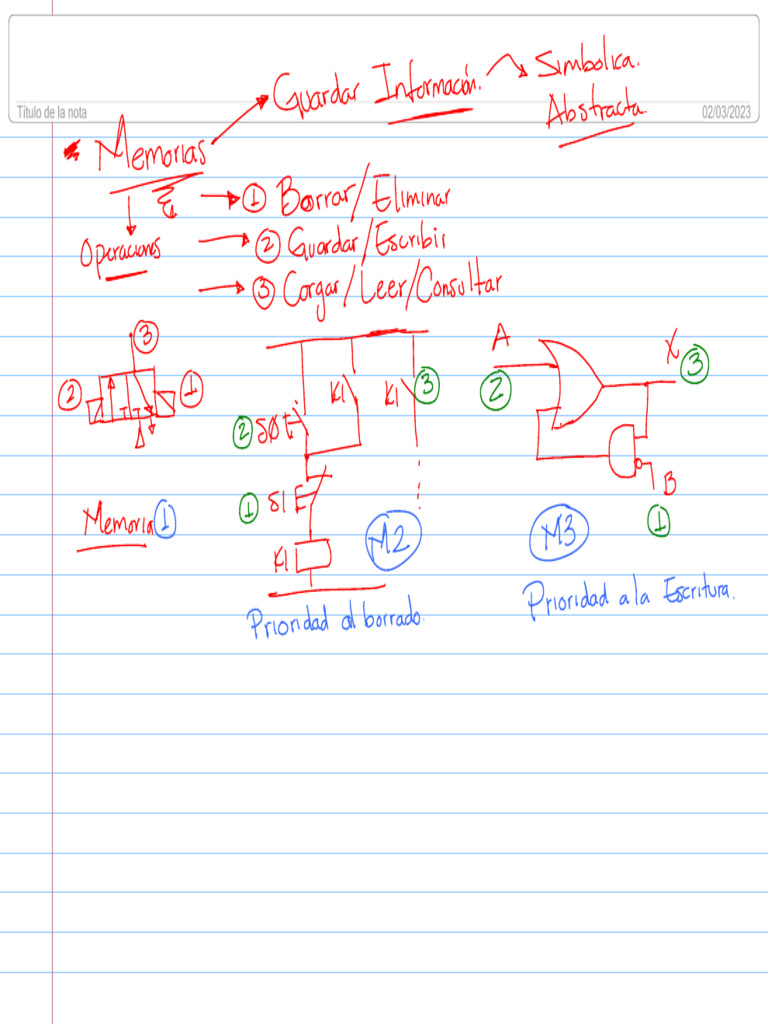 Título de la nota
02/03/2023
Guardar Información. Simbolica.
Abstracta.
* Memorias
① Borrar/Eliminar
Operaciones
② Guardar/Escribir
③ Cargar/Leer/Consultar
③
② ①
K1 K1 ③
② S0
① S1
K1
A X
② ③
B
①
Memoria ①
M2
M3
Prioridad al borrado.
Prioridad a la Escritura.